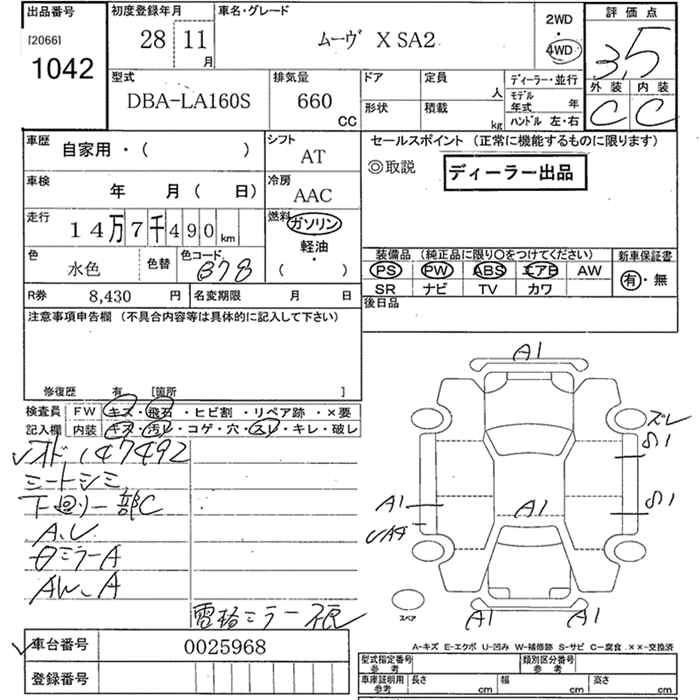 出品番号 初度登録年月 車名・グレード 評価点
[2066] 28 11 月 ムーヴ X SA2 2WD ・ 4WD 3,5
1042
型式 排気量 ドア 定員 人 ディーラー・並行 外装 内装
DBA-LA160S 660 CC 形状 積載 kg モデル年式 年 C C
ハンドル 左・右
車歴 自家用・( ) シフト AT セールスポイント (正常に機能するものに限ります)
◎取説 ディーラー出品
車検 年 月( 日) 冷房 AAC
走行 14万7千490km 燃料 ガソリン
軽油・
( )
色 水色 色替 色コード B78 装備品 (純正品に限り○をつけてください) 新車保証書
PS PW ABS エアB AW 有・無
R券 8,430 円 名変期限 月 日 SR ナビ TV カワ
後日品
注意事項申告欄 (不具合内容等は具体的に記入して下さい)
修復歴 有 [箇所 ]
検査員 FW キズ・飛石・ヒビ割・リペア跡・×要
記入欄 内装 キズ・汚レ・コゲ・穴・スレ・キレ・破レ
オド 147492
シートシミ
下廻り一部C
AW、A
A1
ズレ
A1
A1
A1 A1
スペア
A-キズ E-エクボ U-凹み W-補修跡 S-サビ C-腐食 ××-交換済
車台番号 0025968
登録番号
型式指定番号 参考 類別区分番号 参考
車庫証明用 参考 長さ cm 幅 cm 高さ cm